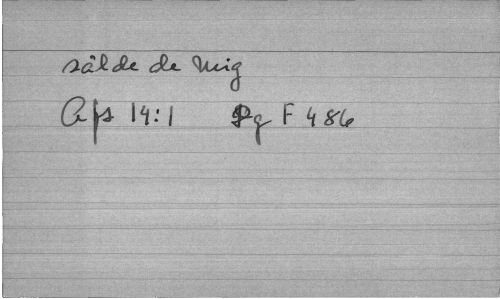 sålde de mig
Aps 14:1 Pg F 486